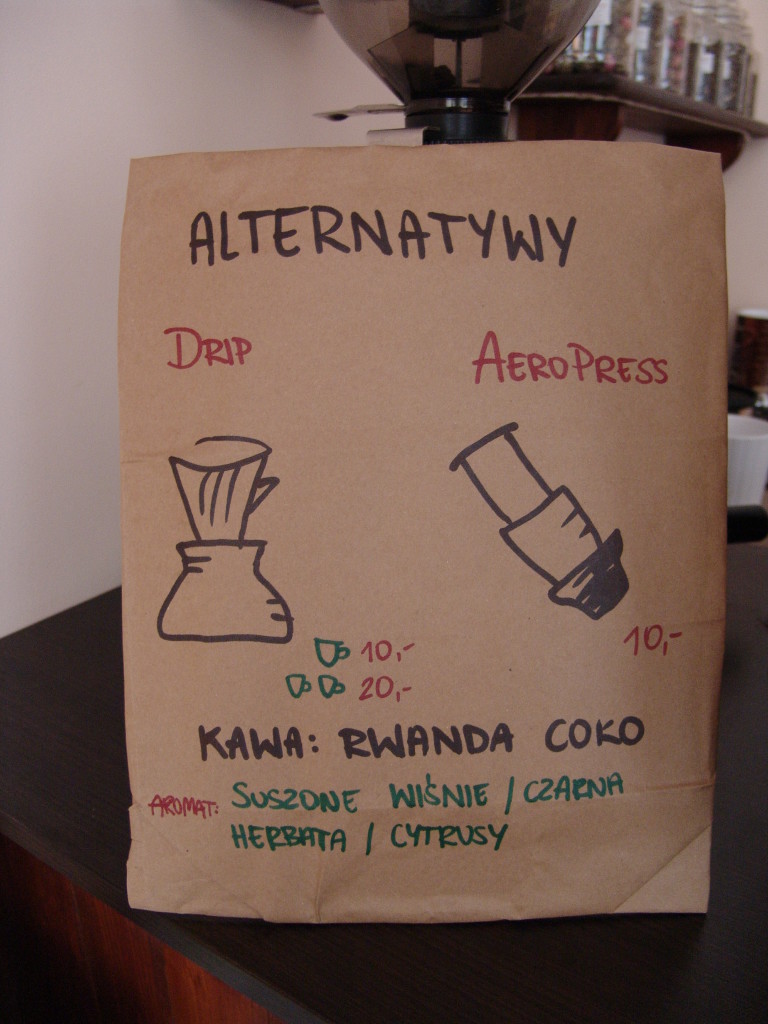 ALTERNATYWY
DRIP
AEROPRESS
10,-
20,-
10,-
KAWA: RWANDA COKO
AROMAT: SUSZONE WIŚNIE / CZARNA
HERBATA / CYTRUSY